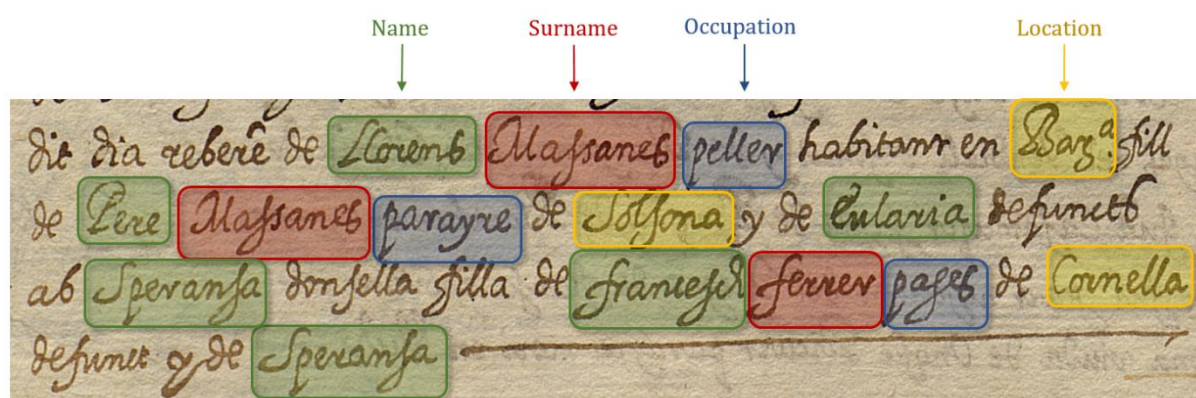 Name Surname Occupation Location
dit dia rebere de Llorens Massanes peller habitant en Barᵃ. fill
de Pere Massanes parayre de Solsona y de Eularia defuncts
ab Speransa donsella filla de Francesch ferrer pages de Cornella
defunct y de Speransa